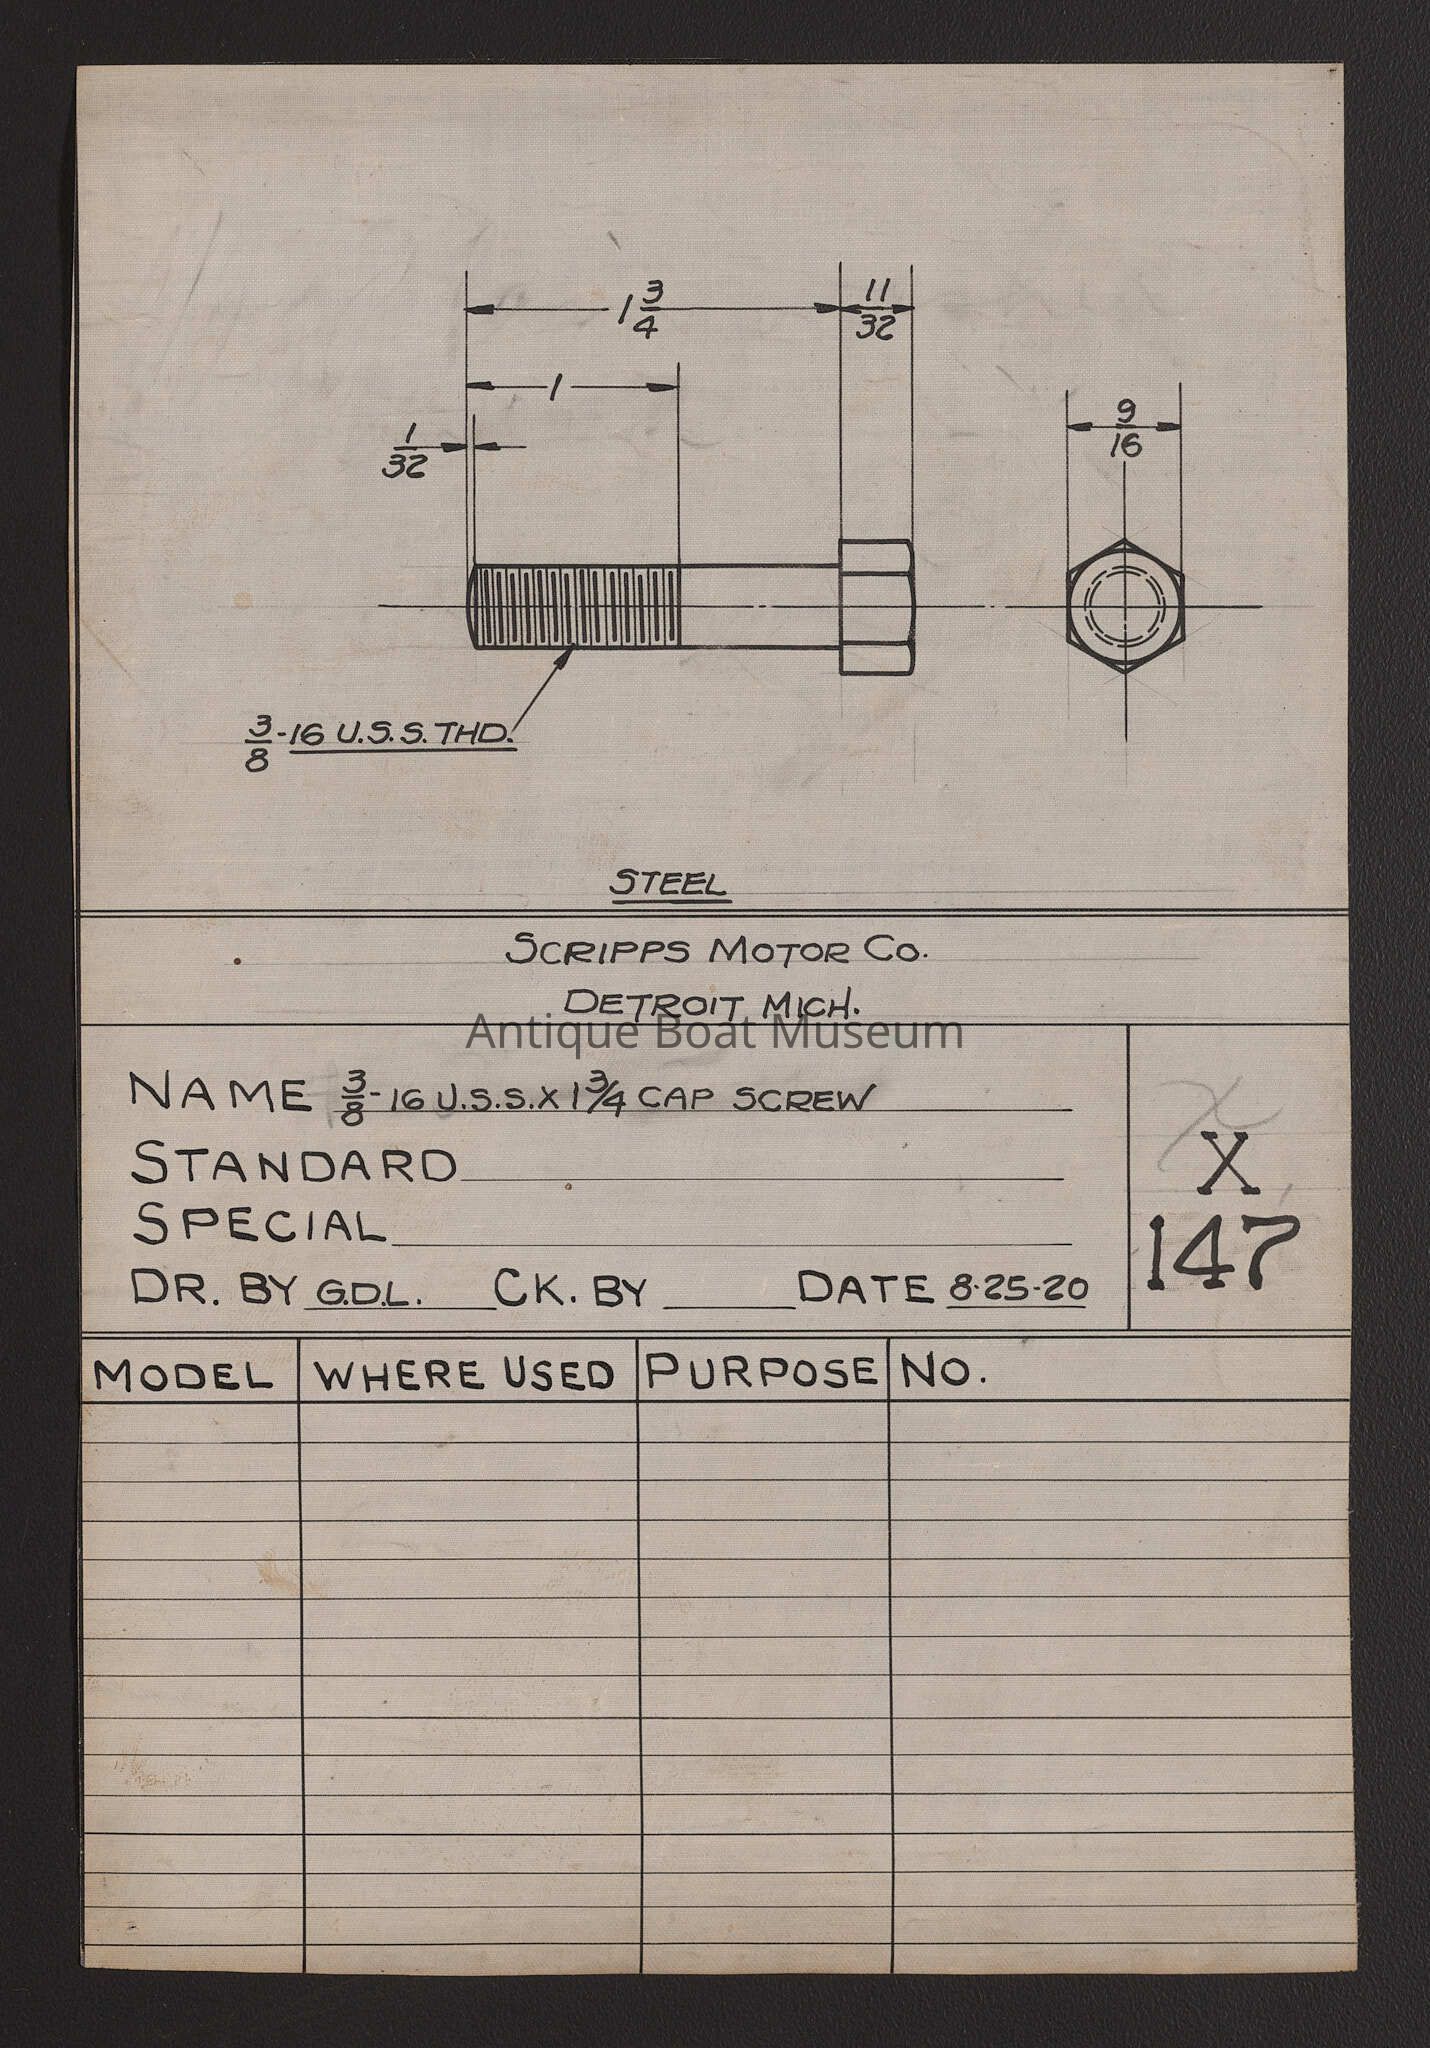 1 3/4
11/32
1
1/32
9/16
3/8-16 U.S.S. THD.
STEEL
SCRIPPS MOTOR CO.
DETROIT MICH.
Antique Boat Museum
NAME 3/8-16 U.S.S. X 1 3/4 CAP SCREW
STANDARD
SPECIAL
DR. BY G.D.L. CK. BY DATE 8-25-20
X
147
MODEL WHERE USED PURPOSE NO.